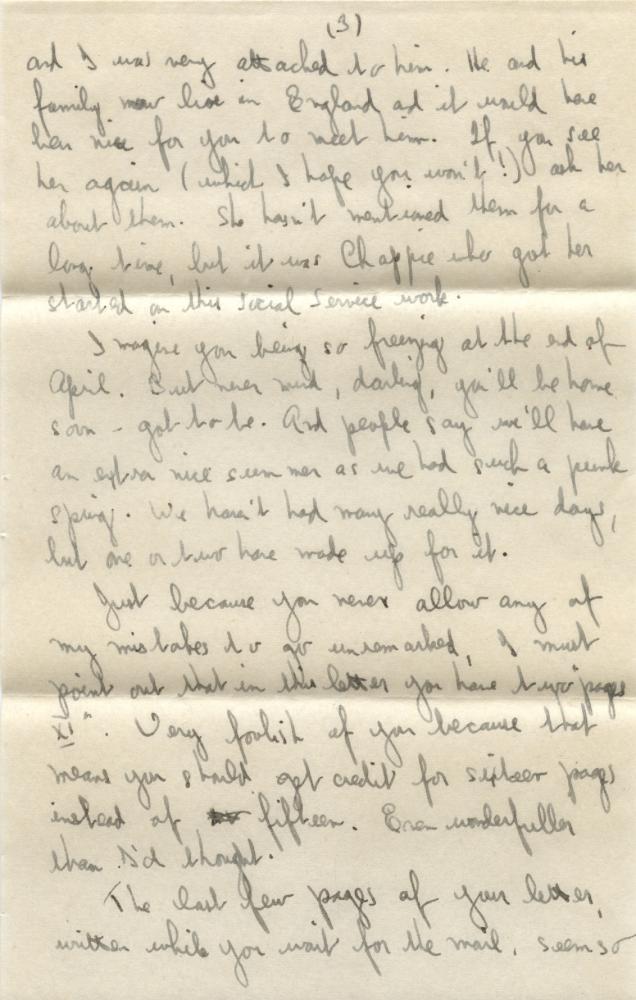 (3)
and I was very attached to him. He and his
family now live in England ad it would have
been nice for you to meet him. If you see
her again (which I hope you won't!) ask her
about them. She hasn't mentioned them for a
long time, but it was Chappie who got her
started on this Social Service work.
Imagine you being so freezing at the end of
April. But never mind, darling, you'll be home
soon - got to be. And people say we'll have
an extra nice summer as we had such a punk
spring. We haven't had many really nice days,
but one or two have made up for it.
Just because you never allow any of
my mistakes to go unremarked, I must
point out that in this letter you have two "pages
XI". Very foolish of you because that
means you should get credit for sixteen pages
instead of fifteen. Even wonderfuller
than I'd thought.
The last few pages of your letter,
written while you wait for the mail, seem so